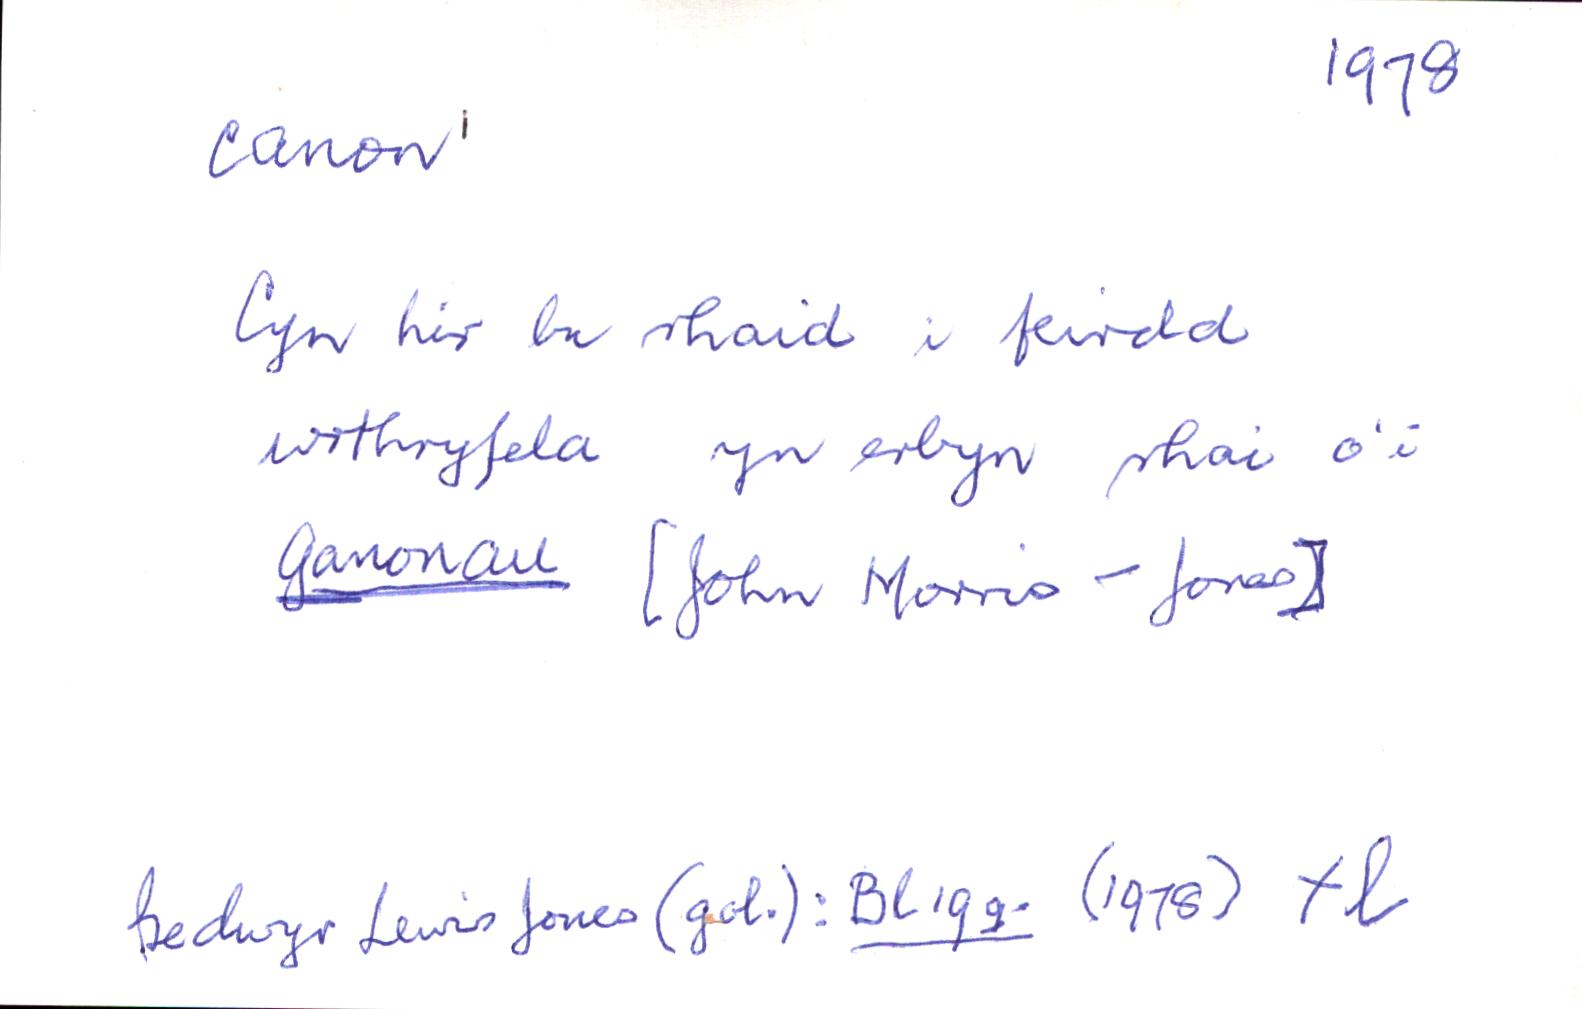 1978
canon¹
Cyn hir bu rhaid i feirdd
wrthryfela yn erbyn rhai o'i
ganonau [John Morris-Jones]
Bedwyr Lewis Jones (gol.): Bl 19g. (1978) xl